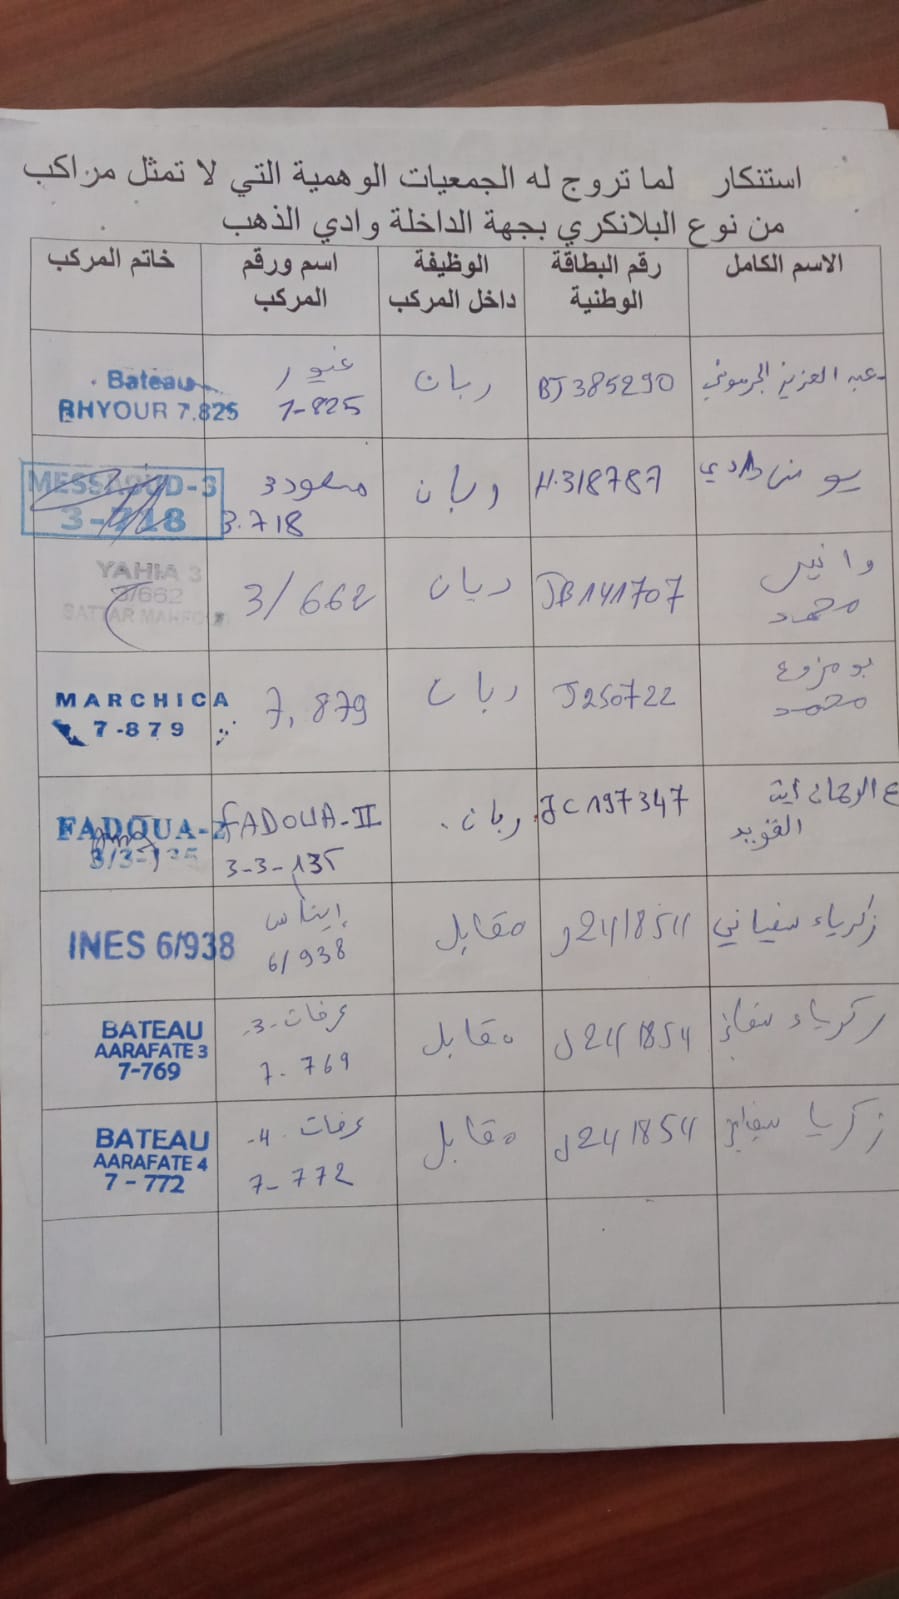 استنكار لما تروج له الجمعيات الوهمية التي لا تمثل مراكب
من نوع البلانكري بجهة الداخلة وادي الذهب
الاسم الكامل
رقم البطاقة الوطنية
الوظيفة داخل المركب
اسم ورقم المركب
خاتم المركب
عبد العزيز
BJ385290
ربان
غيور
7-825
Bateau
RHYOUR 7.825
H.318787
ربان
مسعود 3
3.718
MESSAOUD-3
3-718
محمد
JB141707
ربان
3/662
YAHIA 3
3/662
SATTAR
بومزوغ
محمد
J250722
ربان
7,879
MARCHICA
7-879
ع الرحمان ايت
JC197347
ربان.
FADOUA-II
3-3-135
FADOUA-2
زكرياء سفياني
J241854
مقابل
إيناس
6/938
INES 6/938
زكرياء
J241854
مقابل
عرفات-3-
7-769
BATEAU
AARAFATE 3
7-769
زكريا
J241854
مقابل
عرفات 4-
7-772
BATEAU
AARAFATE 4
7-772